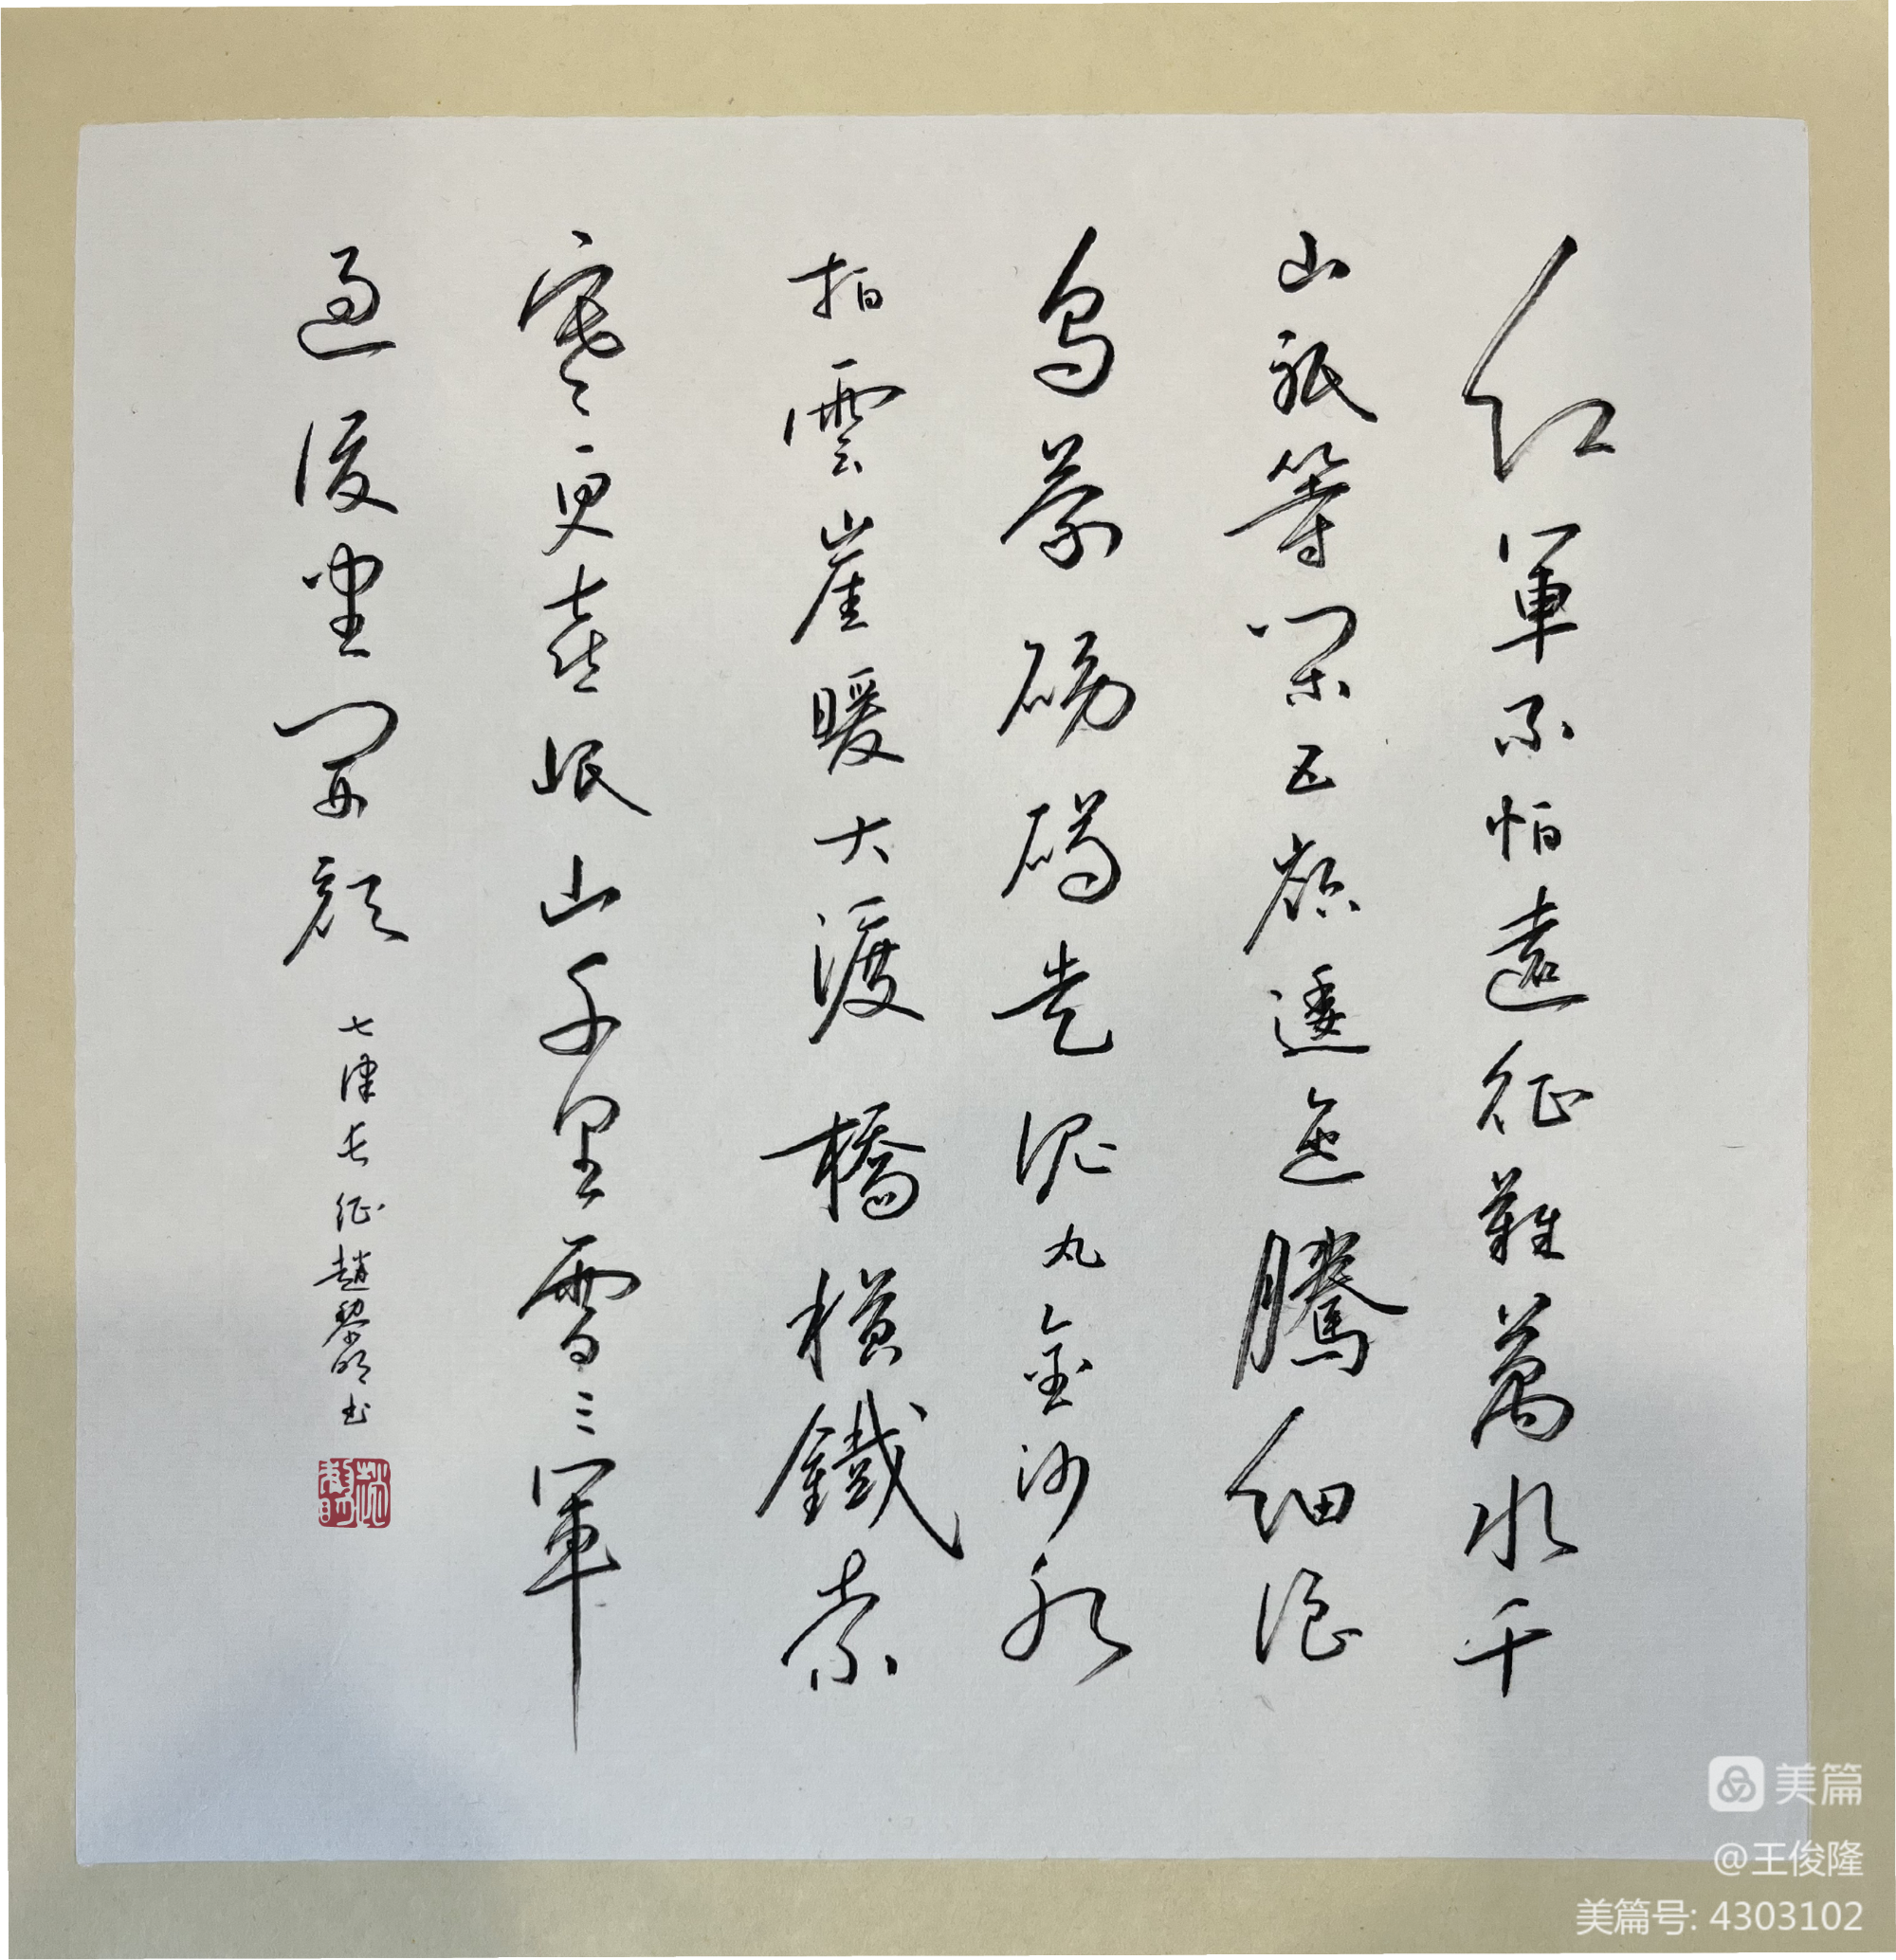 紅軍不怕遠征難萬水千
山祇等閑五嶺逶迤騰細浪
烏蒙磅礴走泥丸金沙水
拍雲崖暖大渡橋橫鐵索
寒更喜岷山千里雪三軍
過後盡開顏
七律長征趙黎明書
美篇
@王俊隆
美篇号: 4303102